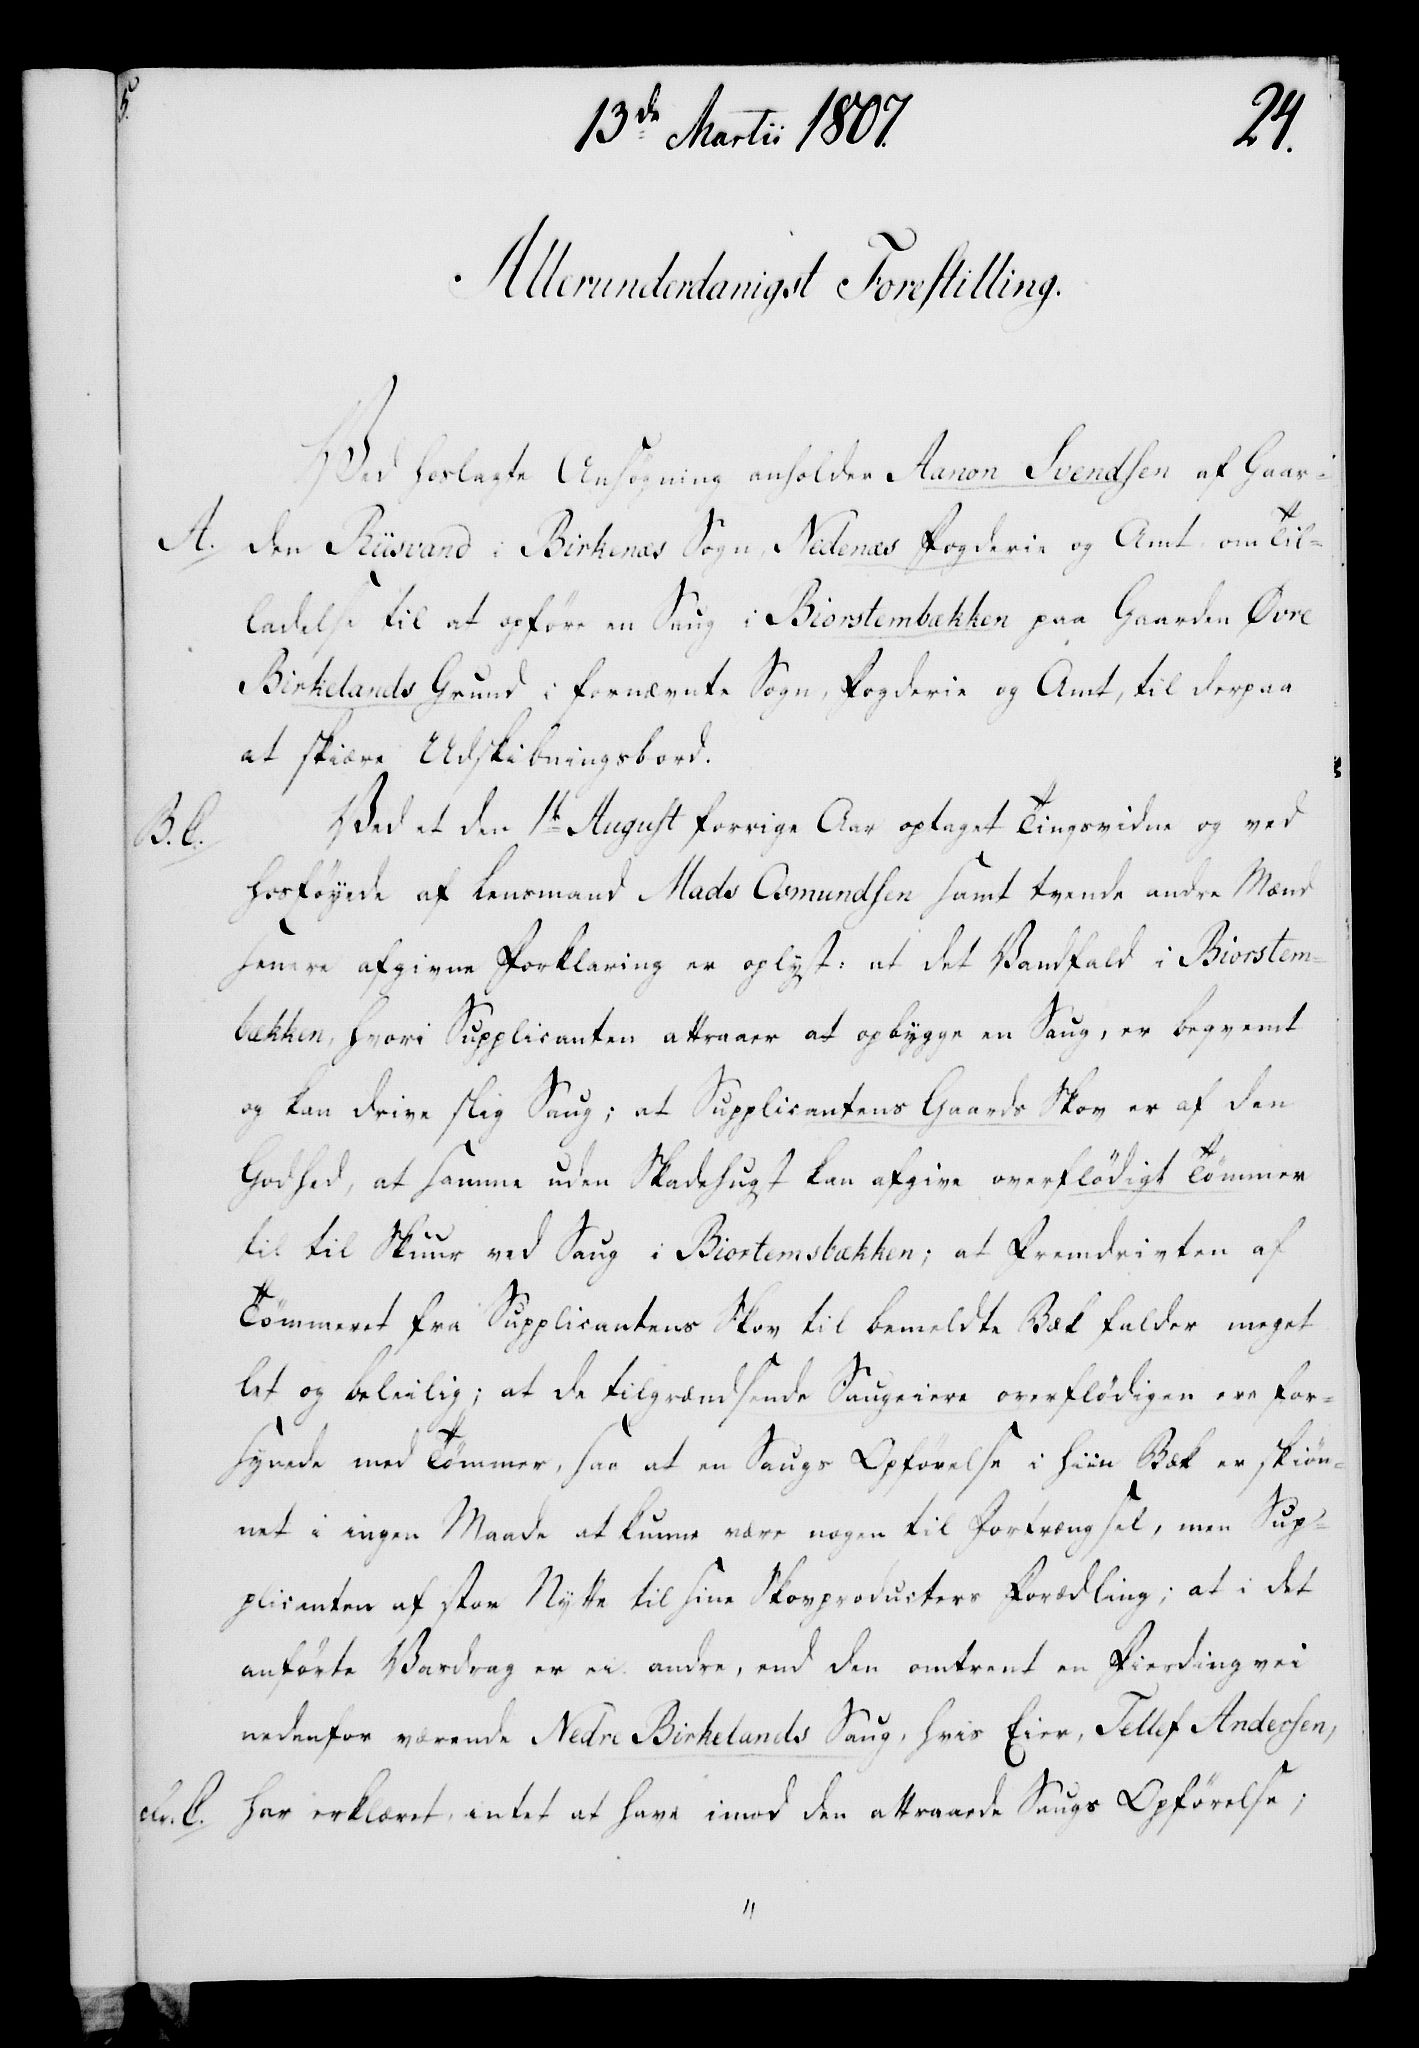 13de Martii 1807.
24.
Allerunderdanigst Forestilling.
Ved hoslagte Ansøgning anholder Aanon Svendsen af Gaar-
A. den Riisvand i Birkenæs Sogn, Nedenæs Fogderie og Amt om Til-
ladelse til at opföre en Saug i Biorstembækken paa Gaarden Øvre
Birkelands Grund i fornævnte Sogn, Fogderie og Amt, til derpaa
at skiære Udskibningsbord.
B. C. Ved et den 1te August forrige Aar optaget Tingsvidne og ved
hosföyede af Lensmand Mads Osmundsen samt tvende andre Mænd
senere afgivne Forklaring er oplyst: at det Vandfald i Biorstem-
bækken, hvori Supplicanten attraaer at opbygge en Saug, er beqvemt
og kan drive slig Saug; at Supplicantens Gaards Skov er af den
Godhed, at samme uden Skadehugst kan afgive overflödigt Tömmer
til til Skuur ved Saug i Biortemsbækken; at Fremdrivten af
Tömmeret fra Supplicantens Skov til bemeldte Bæk falder meget
let og beleilig; at de tilgrændsende Saugeiere overflödigen ere for-
synede med Tömmer, saa at en Saugs Opförelse i hiin Bæk er skiön-
net i ingen Maade at kunne være nogen til Fortrængsel, men Sup-
plicanten af stor Nytte til sine Skovproducters Forædling; at i det
anförte Vasdrag er ei andre, end den omtrent en Fierding vei
nedenfor værende Nedre Birkelands Saug, hvis Eier, Tellef Andersen,
C. har erklæret intet at have imod den attraaede Saugs Opförelse;
"